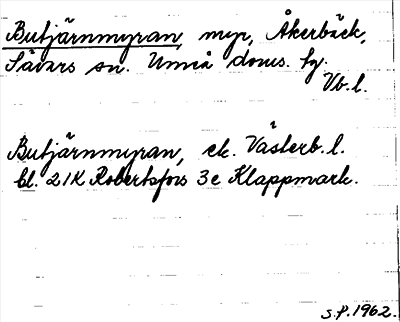 Butjärnmyran, myr, Åkerbäck,
Sävars sn. Umeå doms. hg.
Vb. l.
Butjärnmyran, ek. Västerb. l.
bl. 21K Robertsfors 3e Klappmark.
S.P. 1962.